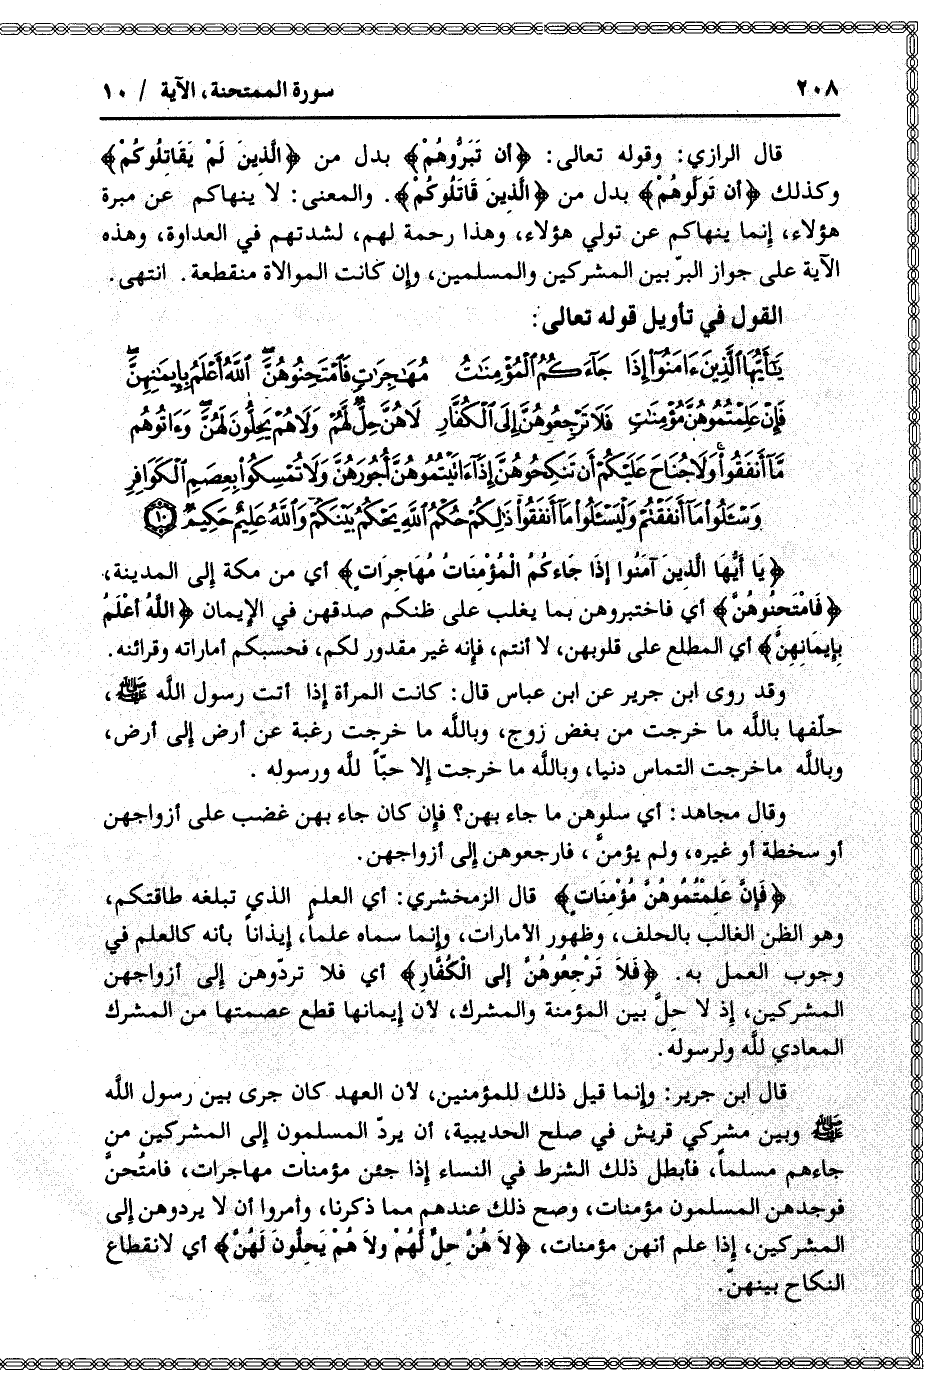 ٢٠٨ سورة الممتحنة، الآية / ١٠
قال الرازي: وقوله تعالى: ﴿أَن تَبَرُّوهُمْ﴾ بدل من ﴿الَّذِينَ لَمْ يُقَاتِلُوكُمْ﴾
وكذلك ﴿أن تَوَلَّوهُمْ﴾ بدل من ﴿الَّذِينَ قَاتَلُوكُمْ﴾. والمعنى: لا ينهاكم عن مبرة
هؤلاء، إنما ينهاكم عن تولي هؤلاء، وهذا رحمة لهم، لشدتهم في العداوة، وهذه
الآية على جواز البرّ بين المشركين والمسلمين، وإن كانت الموالاة منقطعة. انتهى.
القول في تأويل قوله تعالى:
يَٰٓأَيُّهَا ٱلَّذِينَ ءَامَنُوٓا۟ إِذَا جَآءَكُمُ ٱلْمُؤْمِنَٰتُ مُهَٰجِرَٰتٍ فَٱمْتَحِنُوهُنَّ ۖ ٱللَّهُ أَعْلَمُ بِإِيمَٰنِهِنَّ ۖ
فَإِنْ عَلِمْتُمُوهُنَّ مُؤْمِنَٰتٍ فَلَا تَرْجِعُوهُنَّ إِلَى ٱلْكُفَّارِ ۖ لَا هُنَّ حِلٌّ لَّهُمْ وَلَا هُمْ يَحِلُّونَ لَهُنَّ ۖ وَءَاتُوهُم
مَّآ أَنفَقُوا۟ ۚ وَلَا جُنَاحَ عَلَيْكُمْ أَن تَنكِحُوهُنَّ إِذَآ ءَاتَيْتُمُوهُنَّ أُجُورَهُنَّ ۚ وَلَا تُمْسِكُوا۟ بِعِصَمِ ٱلْكَوَافِرِ
وَسْـَٔلُوا۟ مَآ أَنفَقْتُمْ وَلْيَسْـَٔلُوا۟ مَآ أَنفَقُوا۟ ۚ ذَٰلِكُمْ حُكْمُ ٱللَّهِ ۖ يَحْكُمُ بَيْنَكُمْ ۚ وَٱللَّهُ عَلِيمٌ حَكِيمٌ ١٠
﴿يَا أَيُّهَا الَّذِينَ آمَنُوا إِذَا جَاءَكُمُ الْمُؤْمِنَاتُ مُهَاجِرَاتٍ﴾ أي من مكة إلى المدينة،
﴿فَامْتَحِنُوهُنَّ﴾ أي فاختبروهن بما يغلب على ظنكم صدقهن في الإيمان ﴿اللَّهُ أَعْلَمُ
بِإِيمَانِهِنَّ﴾ أي المطلع على قلوبهن، لا أنتم، فإنه غير مقدور لكم، فحسبكم أماراته وقرائنه.
وقد روى ابن جرير عن ابن عباس قال: كانت المرأة إذا أتت رسول الله ﷺ،
حلّفها بالله ما خرجت من بغض زوج، وبالله ما خرجت رغبة عن أرض إلى أرض،
وبالله ماخرجت التماس دنيا، وبالله ما خرجت إلا حبّاً لله ورسوله.
وقال مجاهد: أي سلوهن ما جاء بهن؟ فإن كان جاء بهن غضب على أزواجهن
أو سخطة أو غيره، ولم يؤمنَّ، فارجعوهن إلى أزواجهن.
﴿فَإِنَّ عَلِمْتُمُوهُنَّ مُؤْمِنَاتٍ﴾ قال الزمخشري: أي العلم الذي تبلغه طاقتكم،
وهو الظن الغالب بالحلف، وظهور الأمارات، وإنما سماه علماً، إيذاناً بأنه كالعلم في
وجوب العمل به. ﴿فَلاَ تَرْجِعُوهُنَّ إلى الْكُفَّارِ﴾ أي فلا تردّوهن إلى أزواجهن
المشركين، إذ لا حِلَّ بين المؤمنة والمشرك، لأن إيمانها قطع عصمتها من المشرك
المعادي لله ولرسوله.
قال ابن جرير: وإنما قيل ذلك للمؤمنين، لأن العهد كان جرى بين رسول الله
ﷺ وبين مشركي قريش في صلح الحديبية، أن يردّ المسلمون إلى المشركين من
جاءهم مسلماً، فأبطل ذلك الشرط في النساء إذا جئن مؤمنات مهاجرات، فامتُحنَّ
فوجدهن المسلمون مؤمنات، وصح ذلك عندهم مما ذكرنا، وأمروا أن لا يردوهن إلى
المشركين، إذا علم أنهن مؤمنات، ﴿لاَ هُنَّ حِلٌّ لَهُمْ ولاَ هُمْ يَحِلُّونَ لَهُنَّ﴾ أي لانقطاع
النكاح بينهنّ.